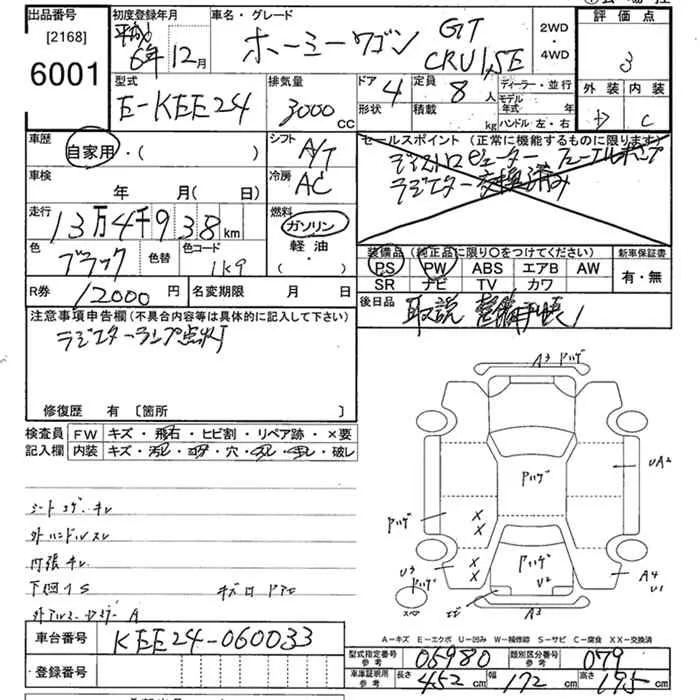 出品番号
[2168]
6001
初度登録年月
平成
6年 12月
車名・グレード
ホーミーワゴン GT
CRUISE
2WD
・
4WD
評価点
3
外装 内装
D C
型式
E-KEE24
排気量
3000 CC
ドア 4 定員 8 人
形状 積載 kg
ディーラー・並行
モデル年式 年
ハンドル 左・右
車歴
自家用・( )
シフト
A/T
車検
年 月( 日)
冷房
AC
セールスポイント(正常に機能するものに限ります)
ディストロビューター フューエルポンプ
ラジエター交換済み
走行
13万4千938km
燃料
ガソリン
軽油
( ・ )
色
ブラック
色替
色コード
1K9
装備品(純正品に限り○をつけてください)
PS PW ABS エアB AW
SR ナビ TV カワ
新車保証書
有・無
R券 12000円 名変期限 月 日
後日品 取説 整備手帳
注意事項申告欄(不具合内容等は具体的に記入して下さい)
ラジエターランプ点灯
修復歴 有 〔箇所 〕
検査員 FW キズ・飛石・ヒビ割・リペア跡・×要
記入欄 内装 キズ・汚レ・コゲ・穴・スレ・キレ・破レ
シートコゲ・キレ
外ハンドルスレ
内張キレ
下廻りS
キズ凹
A3 ハゲ
Pハゲ
UA2
Pハゲ
X
X
X
X
Pハゲ
U2
U3
Pハゲ
スペア
A4
U1
A3
A-キズ E-エクボ U-凹み W-補修跡 S-サビ C-腐食 XX-交換済
車台番号 KEE24-060033
登録番号
型式指定番号
参考
05980
類別区分番号
参考
079
車庫証明用
参考
長さ 452cm 幅 172cm 高さ 195cm